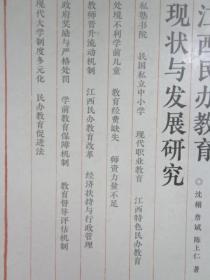 江西民办教育
现状与发展研究
◎沈栩 詹斌 陈上仁 著
私塾书院 民国私立中小学 现代职业教育 江西特色民办教育
处境不利学前儿童 教育经费缺失 师资力量不足
教师晋升流动机制 江西民办教育改革 经济扶持与行政管理
政府奖励与严格处罚 学前教育保障机制 教育督导评估机制
现代大学制度多元化 民办教育促进法